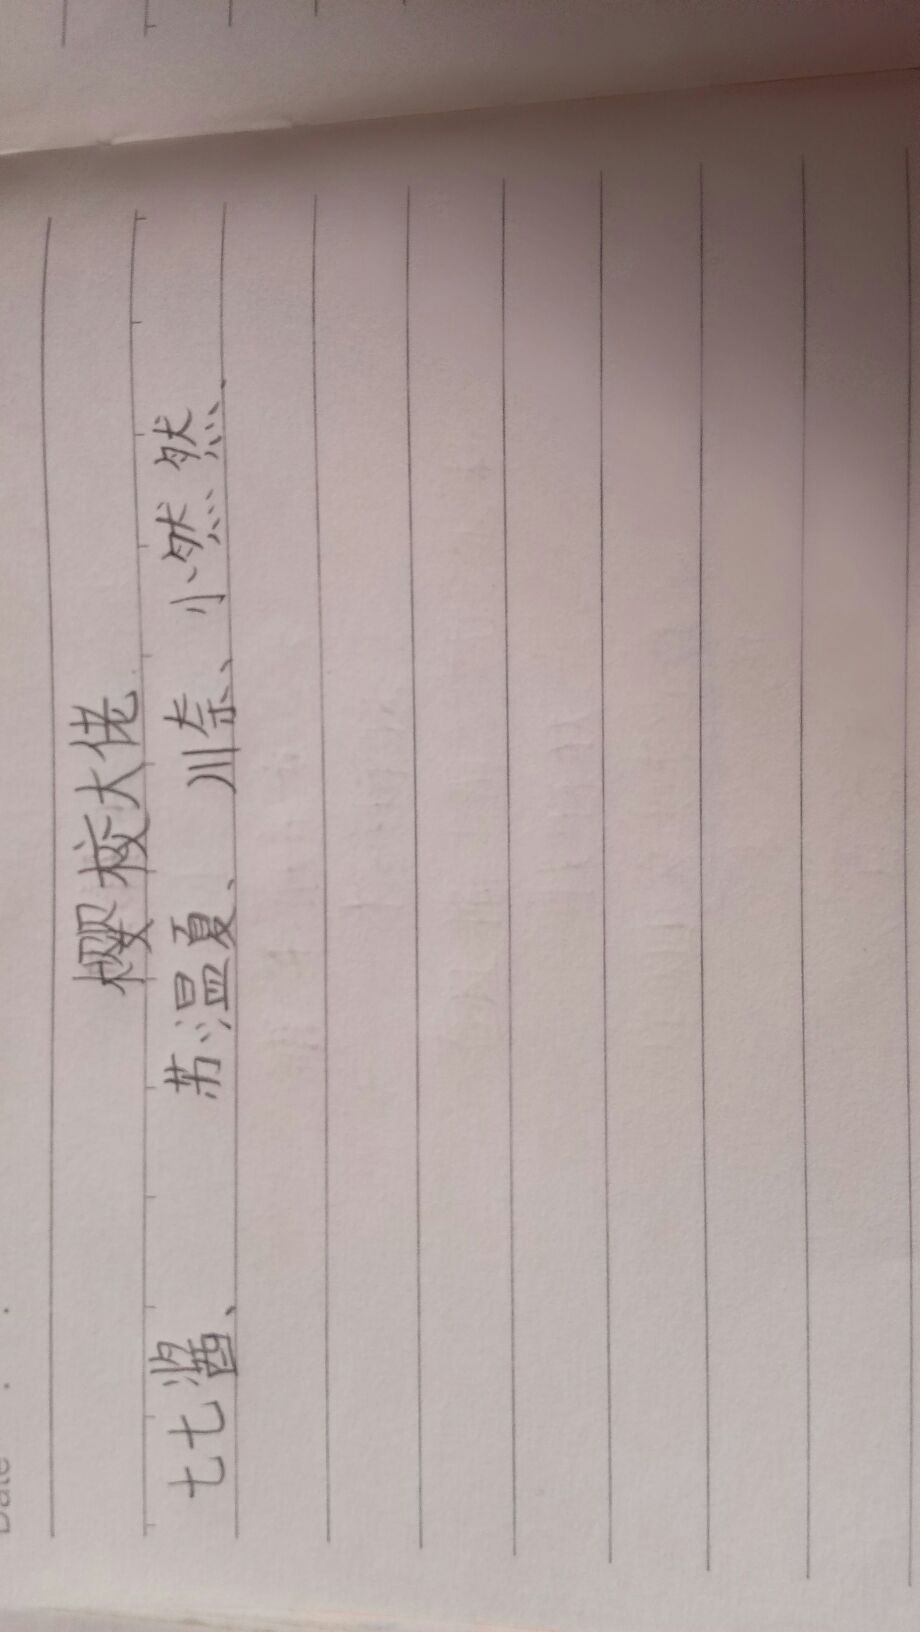 Date
樱校大佬
七七酱、 苏温夏、川奈、小然然、